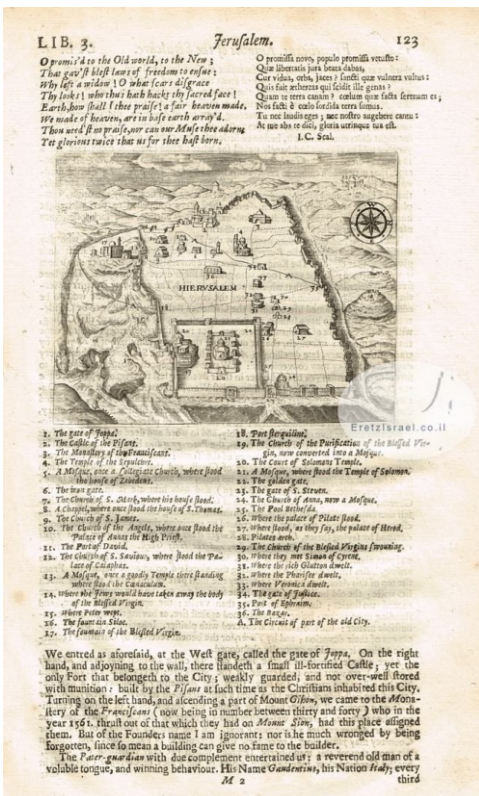 LIB. 3.
Jerusalem.
123
O promis'd to the Old world, to the New;
That gav'st blest laws of freedom to ensue;
Why left a widow! O what scars disgrace
Thy looks! who thus hath hackt thy sacred face!
Earth, how shall I thee praise! a fair heaven made.
We made of heaven, are in base earth array'd.
Thou need'st no praise, nor can our Muse thee adorn;
Yet glorious twice that us for thee hast born.
O promissa novo, populo promissa vetusto:
Quæ libertatis jura beata dabas,
Cur vidua, orba, jaces? sancti quæ vulnera vultus:
Quis fuit æthereas qui scidit ille genas?
Quam te terra canam? cœlum quæ facta serenum es;
Nos facti è cœlo sordida terra sumus.
Tu nec laudis eges; nec nostro augebere cantu:
At me abs te dici, gloria utrinque tua est.
I.C. Scal.
HIERUSALEM
1. The gate of Joppa.
2. The Castle of the Pisans.
3. The Monastery of the Franciscans.
4. The Temple of the Sepulcre.
5. A Mosque, once a Collegiate Church, where stood
the house of Zebedeus.
6. The iron gate.
7. The Church of S. Mark, where his house stood.
8. A Chappel, where once stood the house of S. Thomas.
9. The Church of S. James.
10. The Church of the Angels, where once stood the
Palace of Annas the High Priest.
11. The Port of David.
12. The Church of S. Saviour, where stood the Pa-
lace of Caiaphas.
13. A Mosque, once a goodly Temple there standing
where stood the Cœnaculum.
14. Where the Jews would have taken away the body
of the Blessed Virgin.
15. Where Peter wept.
16. The fountain Siloe.
17. The fountain of the Blessed Virgin.
18. Port sterquiline.
19. The Church of the Purification of the Blessed Vir-
gin, now converted into a Mosque.
20. The Court of Solomons Temple.
21. A Mosque, where stood the Temple of Solomon.
22. The golden gate.
23. The gate of S. Steven.
24. The Church of Anna, now a Mosque.
25. The Pool Bethesda.
26. Where the palace of Pilate stood.
27. Where stood, as they say, the palace of Herod.
28. Pilates arch.
29. The Church of the Blessed Virgins swouning.
30. Where they met Simon of Cyrene.
31. Where the rich Glutton dwelt.
32. Where the Pharisee dwelt.
33. Where Veronica dwelt.
34. The gate of Justice.
35. Port of Ephraim.
36. The Bazar.
A. The Circuit of part of the old City.
EretzIsrael.co.il
We entred as aforesaid, at the West gate, called the gate of Joppa. On the right
hand, and adjoyning to the wall, there standeth a small ill-fortified Castle; yet the
only Fort that belongeth to the City; weakly guarded, and not over-well stored
with munition: built by the Pisans at such time as the Christians inhabited this City.
Turning on the left hand, and ascending a part of Mount Gihon, we came to the Mona-
stery of the Franciscans (now being in number between thirty and forty) who in the
year 1561. thrust out of that which they had on Mount Sion, had this place assigned
them. But of the Founders name I am ignorant: nor is he much wronged by being
forgotten, since so mean a building can give no fame to the builder.
The Pater-guardian with due complement entertained us; a reverend old man of a
voluble tongue, and winning behaviour. His Name Gaudentius, his Nation Italy; every
M 2
third